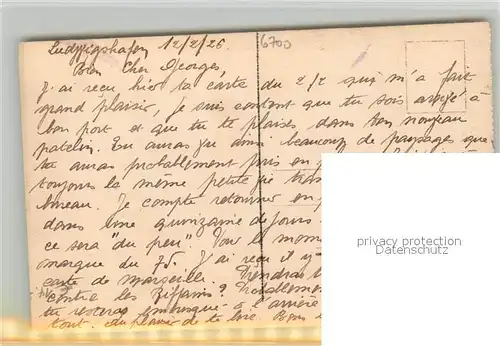 Ludwigshafen 12/2/26
6700
Bien Cher Georges,
J'ai reçu hier ta carte du 2/2 qui m'a fait
grand plaisir, je suis content que tu sois arrivé à
bon port et que tu te plaises dans ton nouveau
patelin. Tu auras vu ainsi beaucoup de paysages que
tu auras probablement pris en
toujours la même petite vie
bureau. Je compte retourner en
dans une quinzaine de jours
ce sera "du peu". Pour le moment
marque du 75. J'ai reçu il y
carte de Marseille. Prendras
contre les Riffains? Probablement
tu resteras embusqué à l'arrière
tout. Au plaisir de te lire. Bons
privacy protection
Datenschutz